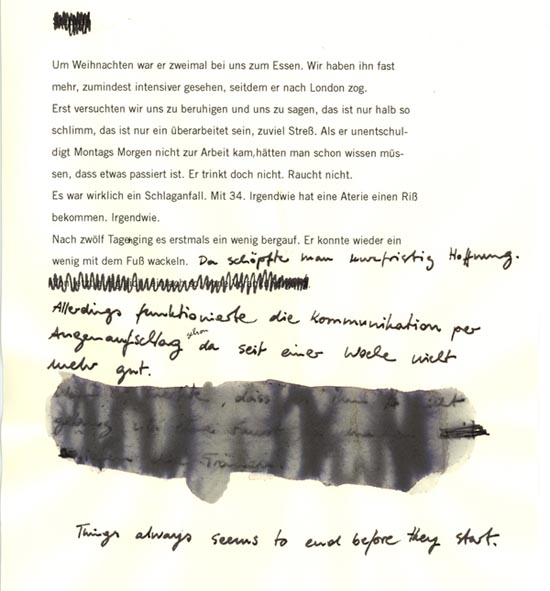 Um Weihnachten war er zweimal bei uns zum Essen. Wir haben ihn fast
mehr, zumindest intensiver gesehen, seitdem er nach London zog.
Erst versuchten wir uns zu beruhigen und uns zu sagen, das ist nur halb so
schlimm, das ist nur ein überarbeitet sein, zuviel Streß. Als er unentschul-
digt Montags Morgen nicht zur Arbeit kam,hätten man schon wissen müs-
sen, dass etwas passiert ist. Er trinkt doch nicht. Raucht nicht.
Es war wirklich ein Schlaganfall. Mit 34. Irgendwie hat eine Aterie einen Riß
bekommen. Irgendwie.
Nach zwölf Tagen ging es erstmals ein wenig bergauf. Er konnte wieder ein
wenig mit dem Fuß wackeln. Da schöpfte man kurzfristig Hoffnung.
Allerdings funktionierte die Kommunikation per
Augenaufschlag schon da seit einer Woche nicht
mehr gut.
dass
Things always seems to end before they start.